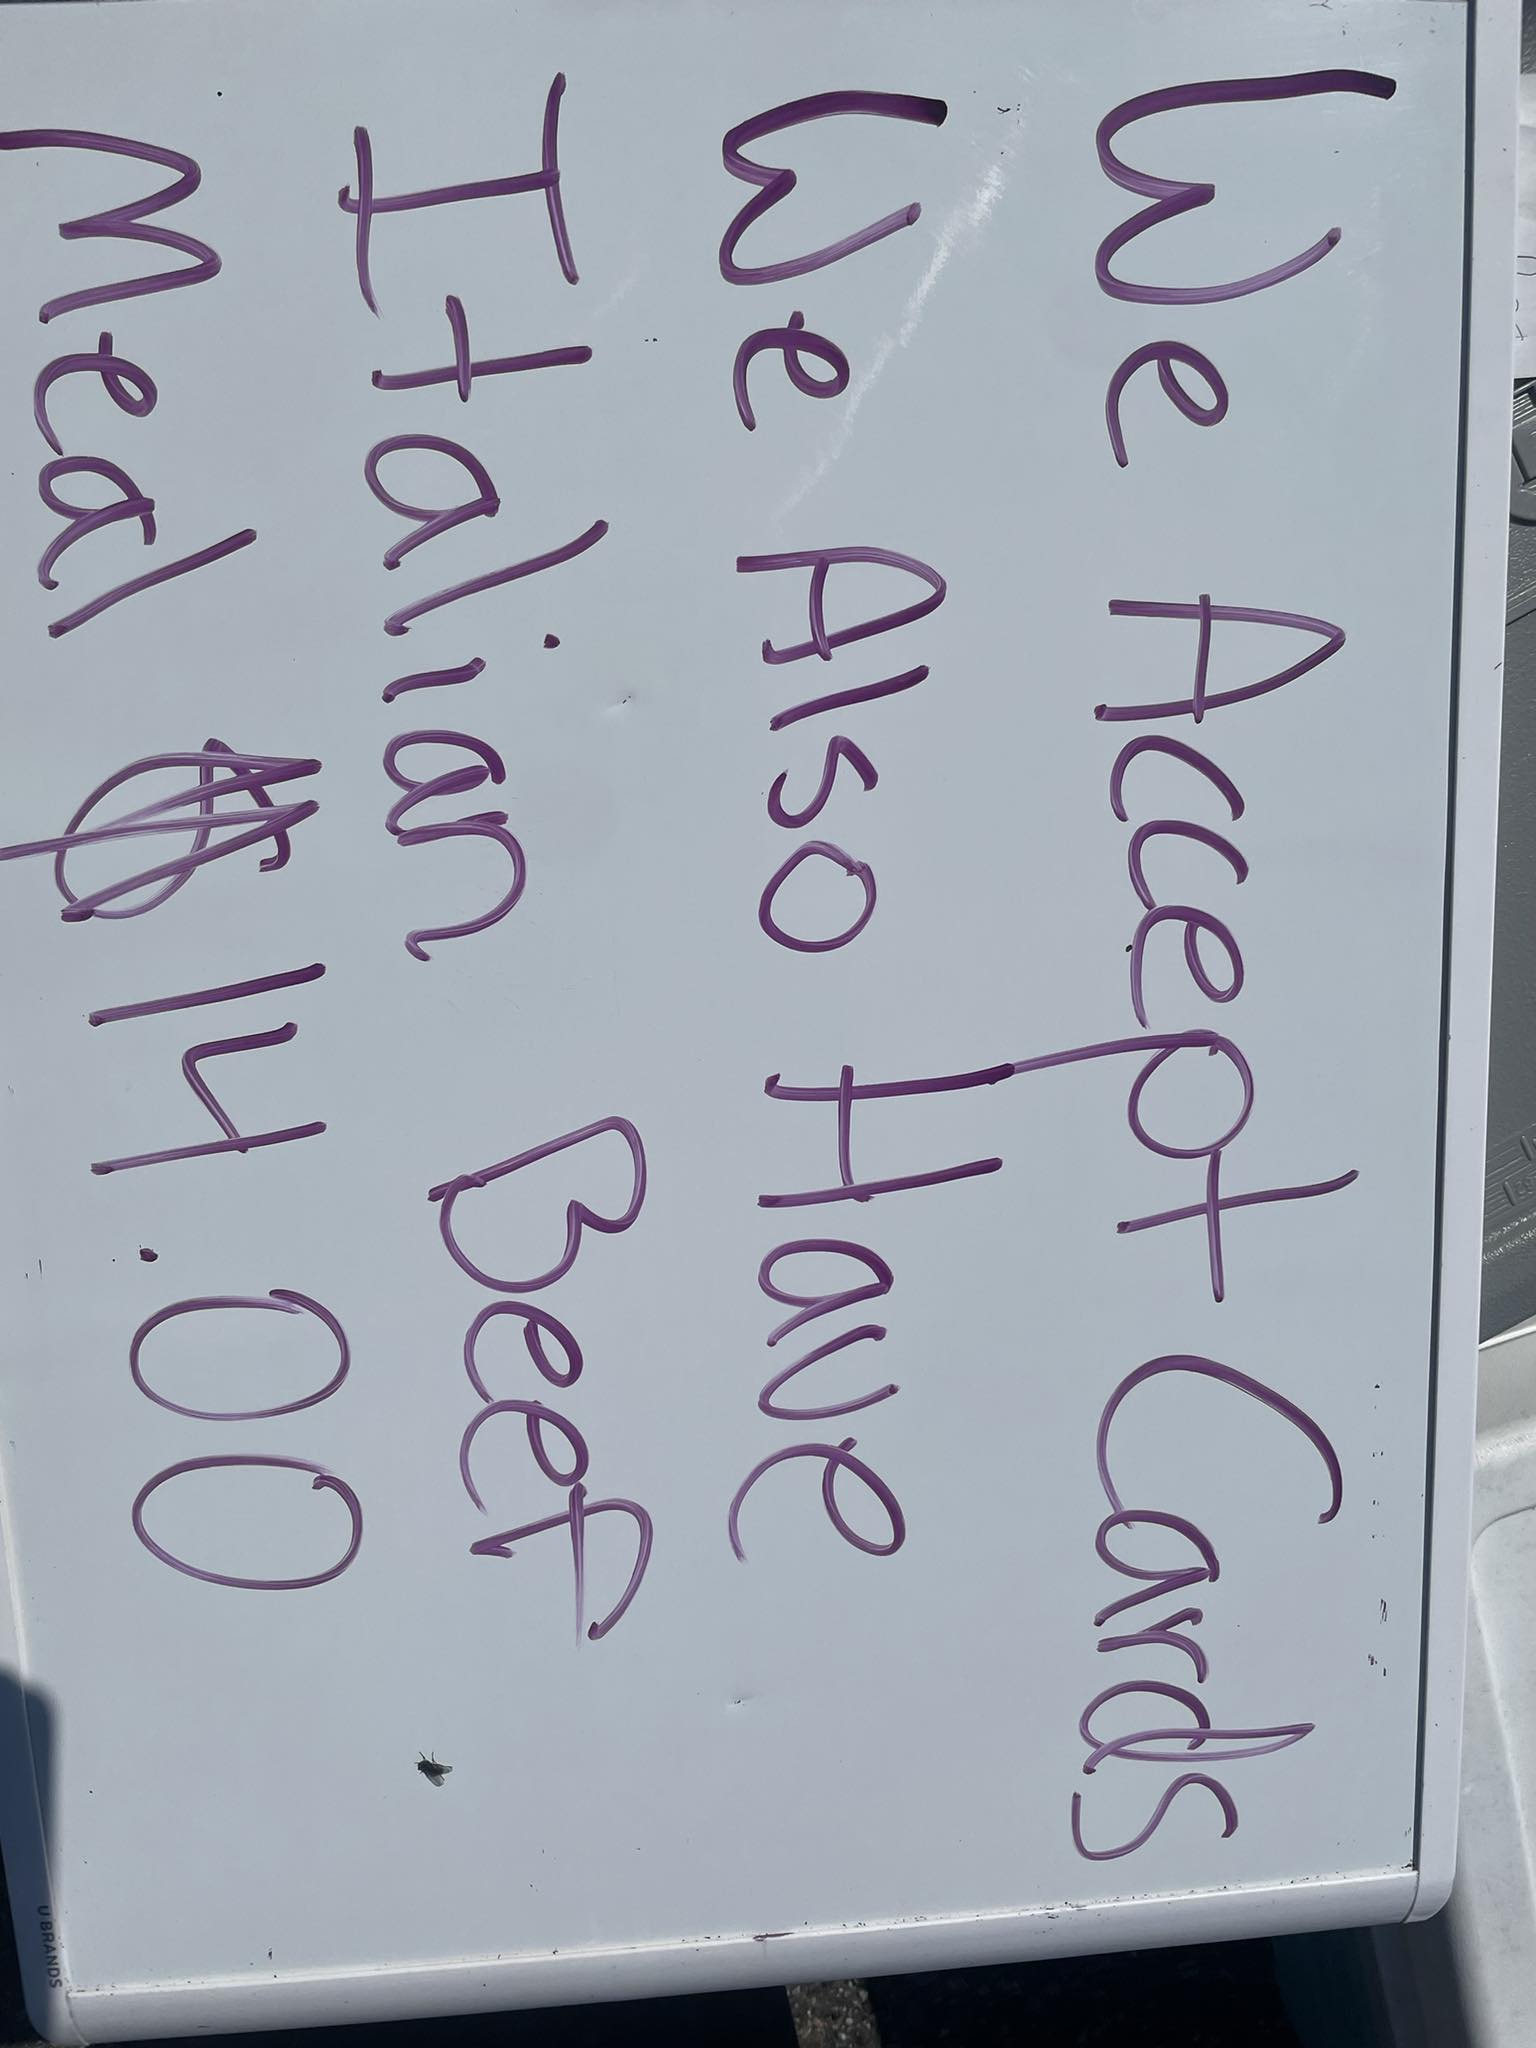 We Accept Cards
We Also Have
Italian Beef
Meal $14.00
U BRANDS